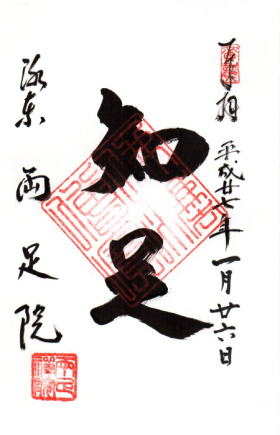 奉拝 平成廿七年一月廿六日
知足
洛東 両足院